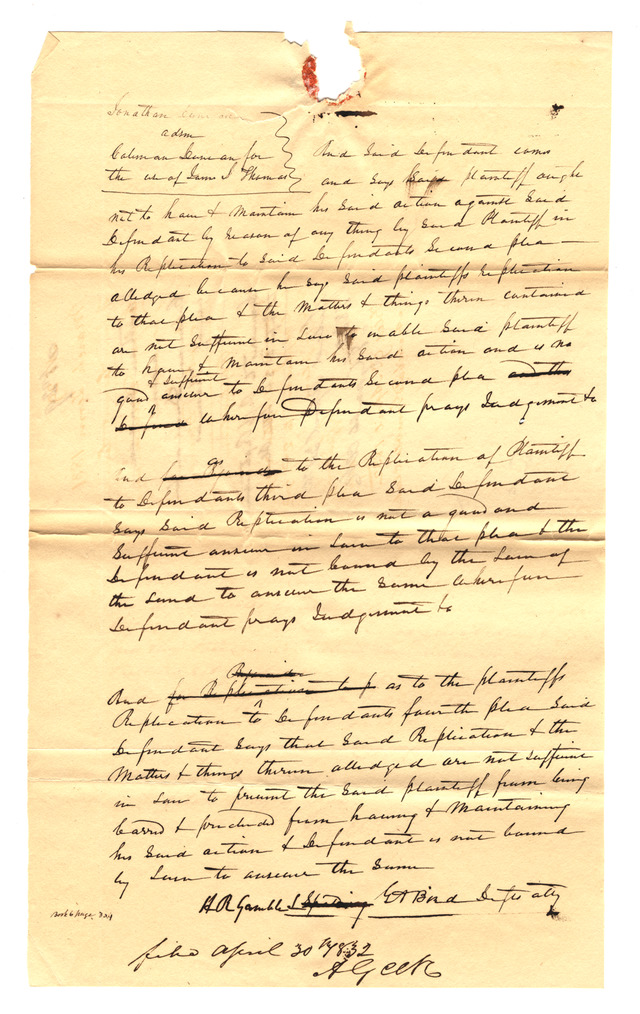 Jonathan
adm
Coleman Duncan for
the use of James S Thomas
And Said Defendant comes
and says Said plaintiff ought
not to have & Maintain his Said action against Said
Defendant by reason of any thing by Said Plaintiff in
his Replication to Said Defendants Second plea
alledged because he says Said plaintiffs replication
to that plea & the Matters & things therin contained
are not Sufficient in Law to enable Said plaintiff
to have & Maintain his Said action and is no
& Sufficient
good answer to Defendants Second plea and this
Defend wherefore Defendant prays Judgement &c
And as to the Replication of Plaintiff
to Defendants third plea Said Defendant
Says Said Replication is not a good and
Sufficient answer in Law to that plea & the
Defendant is not bound by the Law of
the Land to answer the Same wherefore
Defendant prays Judgement &c
And for Replication to p as to the plaintiffs
Replication to Defendants fourth plea Said
Defendant Says that Said Replication & the
Matters & things therin alledged are not Sufficient
in Law to prevent the Said plaintiff from being
barred & precluded from having & Maintaining
his Said action & Defendant is not bound
by Law to answer the Same
H R Gamble L Spalding G A Bird Defts atty
book 6 page
filed April 30th 1832
A G Clk